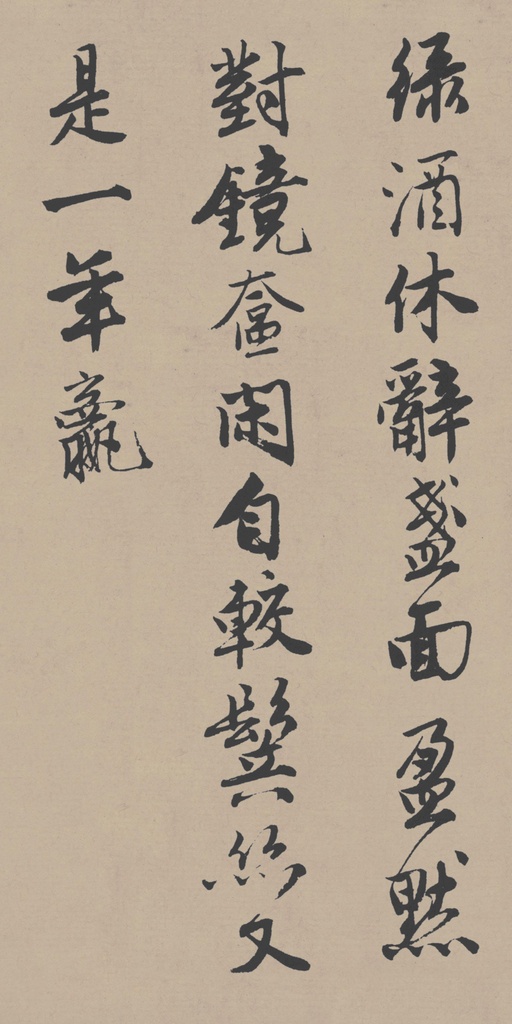 緑酒休辭盞面盈默
對鏡奩閑自較鬓絲又
是一年贏